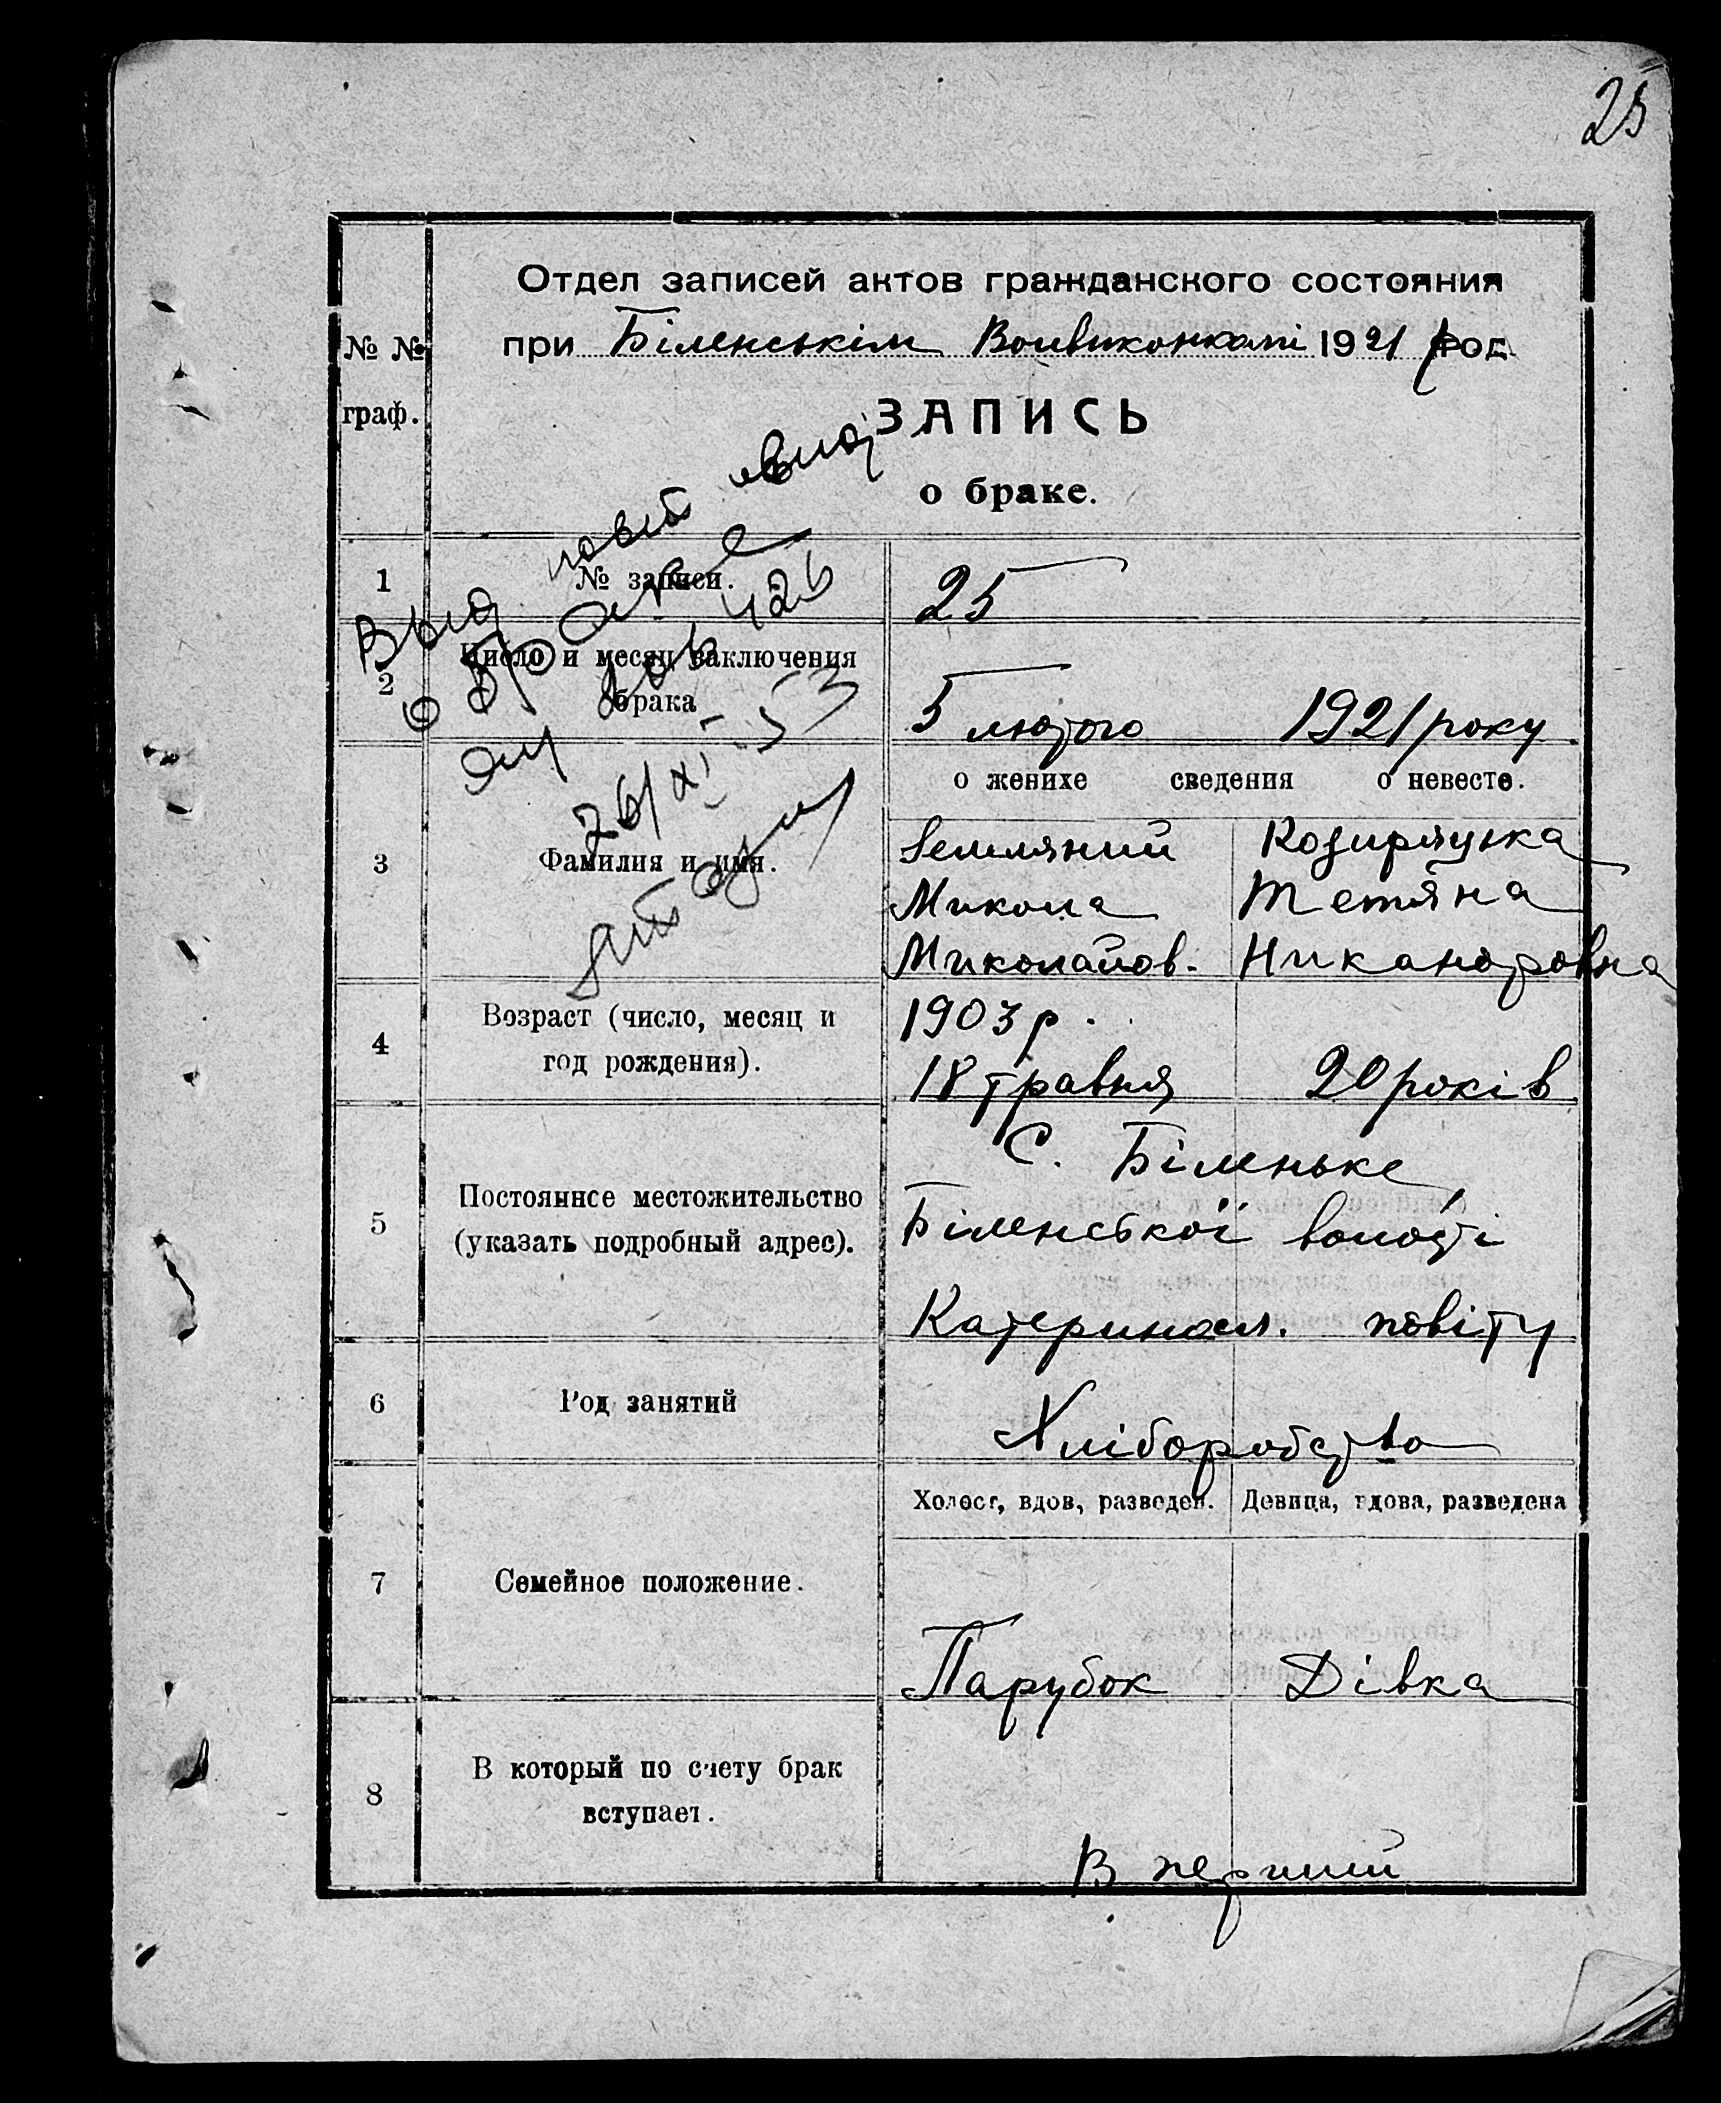 25
Отдел записей актов гражданского состояния
при Біленськім Волвиконкомі 1921 род
№ №
граф.
ЗАПИСЬ
о браке.
Выд повт свид
о браке
яу 426
26/XI-53
1 № записи. 25
2 Число и месяц заключения
брака
5 лютого 1921 року
о женихе сведения о невесте.
3 Фамилия и имя.
Земляний Козиряцька
Микола Тетяна
Миколайов. Никаноровна
4 Возраст (число, месяц и
год рождения).
1903 р.
18 травня 20 років
5 Постоянное местожительство
(указать подробный адрес).
С. Біленьке
Біленської волості
Катериносл. повіту
6 Род занятий Хліборобство
Холост, вдов, разведен. Девица, вдова, разведена
7 Семейное положение.
Парубок Дівка
8 В который по счету брак
вступает.
В перший